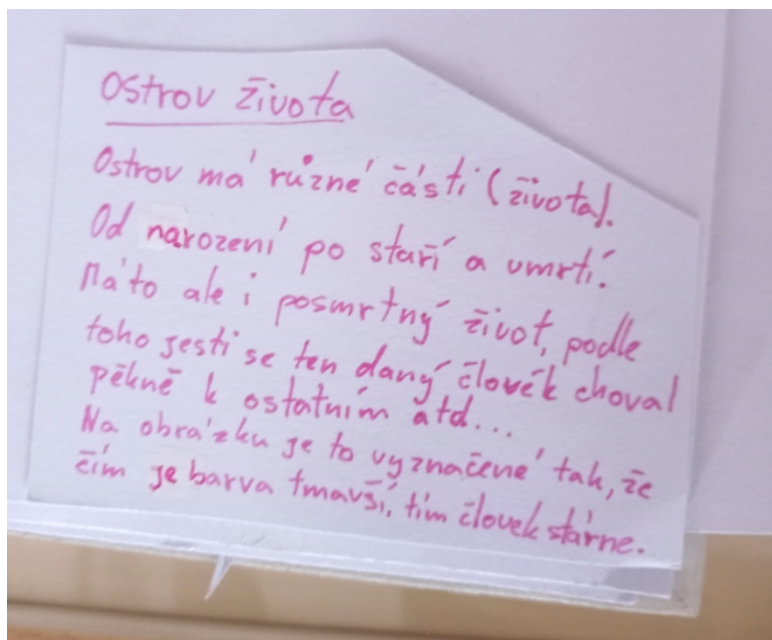 Ostrov života
Ostrov má různé části (života).
Od narození po staří a umrtí.
Má to ale i posmrtný život, podle
toho jesti se ten daný člověk choval
pěkně k ostatním atd...
Na obrázku je to vyznačené tak, že
čím je barva tmavší, tím človek stárne.